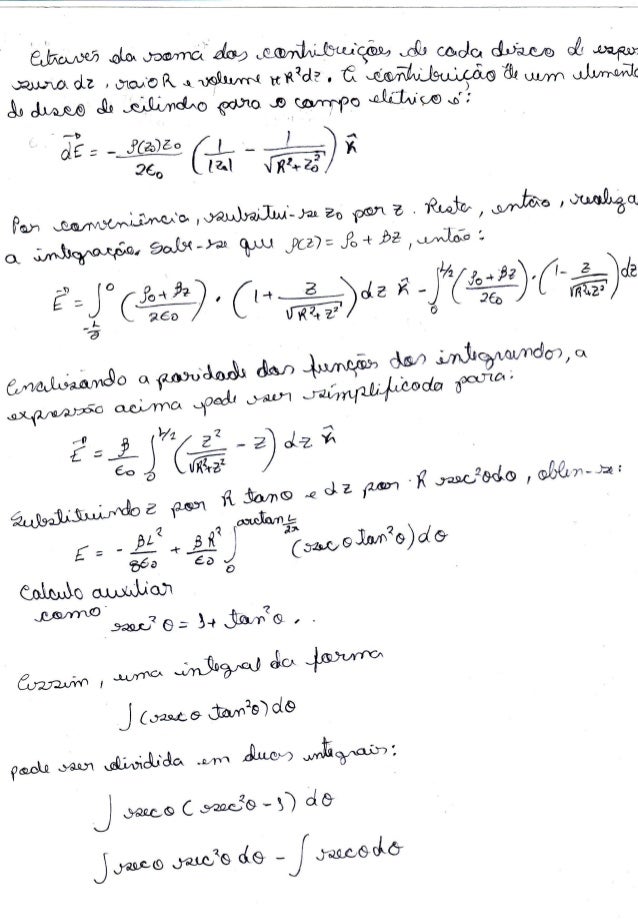 Através da soma das contribuições de cada disco de espes
sura dz, raio R e volume πR²dz. A contribuição de um elemento
de disco de cilindro para o campo elétrico é:
dE = - ρ(z₀)z₀/2ε₀ (1/|z₀| - 1/√(R²+z₀²)) k̂
Por conveniência, substitui-se z₀ por z. Resta, então, realiza
a integração. Sabe-se que ρ(z) = ρ₀ + βz, então:
E = ∫_{-L/2}^{0} ((ρ₀+βz)/2ε₀) · (1 + z/√(R²+z²)) dz k̂ - ∫_{0}^{L/2} ((ρ₀+βz)/2ε₀) · (1 - z/√(R²+z²)) dz
Analisando a paridade das funções dos integrandos, a
expressão acima pode ser simplificada para:
E = β/ε₀ ∫_{0}^{L/2} (z²/√(R²+z²) - z) dz k̂
Substituindo z por R tanθ e dz por R sec²θdθ, obten-se:
E = - βL²/8ε₀ + βR²/ε₀ ∫_{0}^{arctan L/2R} (secθ tan²θ)dθ
Calculo auxiliar
como
sec²θ = 1 + tan²θ . .
Assim, uma integral da forma
∫(secθ tan²θ)dθ
pode ser dividida em duas integrais:
∫ secθ (sec²θ - 1) dθ
∫ secθ sec²θ dθ - ∫ secθdθ